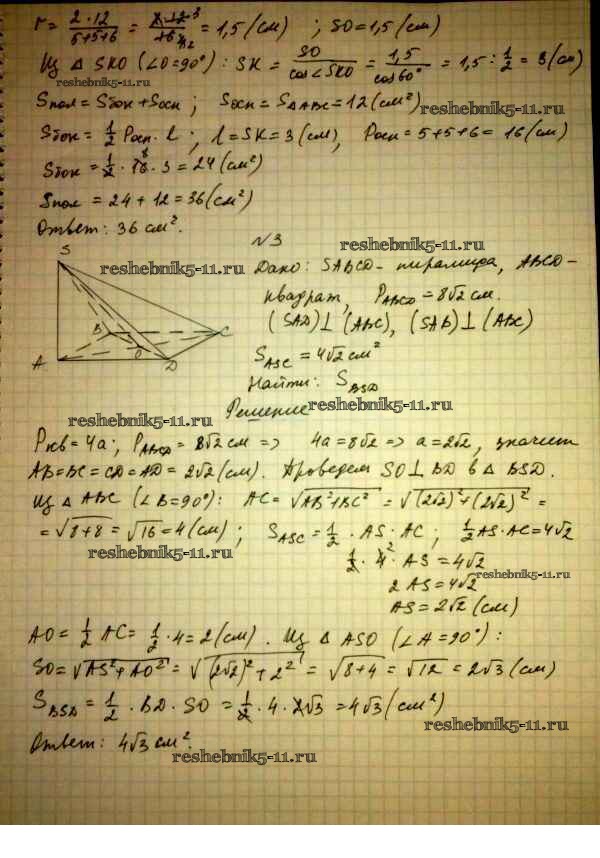 r = 2·12/(5+5+6) = 1,5 (см) ; SO = 1,5 (см)
Из △ SKO (∠O=90°) : SK = SO/cos∠SKO = 1,5/cos60° = 1,5 : 1/2 = 3 (см)
reshebnik5-11.ru
Sпол = Sбок + Sосн ; Sосн = S△ABC = 12 (см²)
reshebnik5-11.ru
Sбок = 1/2 Pосн · l ; l = SK = 3 (см), Pосн = 5+5+6 = 16 (см)
Sбок = 1/2 · 16 · 3 = 24 (см²)
reshebnik5-11.ru
Sпол = 24 + 12 = 36 (см²)
Ответ: 36 см².
N3
reshebnik5-11.ru
S
reshebnik5-11.ru
Дано: SABCD - пирамида, ABCD -
квадрат, PABCD = 8√2 см.
(SAD) ⊥ (ABC), (SAB) ⊥ (ABC)
B C
O
A D
SASC = 4√2 см²
Найти: SBSD
reshebnik5-11.ru
Решение
reshebnik5-11.ru
Pкв = 4a ; PABCD = 8√2 см => 4a = 8√2 => a = 2√2, значит
AB = BC = CD = AD = 2√2 (см). Проведем SO ⊥ BD в △ BSD.
Из △ ABC (∠B = 90°) : AC = √(AB² + BC²) = √((2√2)² + (2√2)²) =
= √(8+8) = √16 = 4 (см) ; SASC = 1/2 · AS · AC ; 1/2 AS · AC = 4√2
reshebnik5-11.ru
1/2 · 4 · AS = 4√2
reshebnik5-11.ru
2 AS = 4√2
AS = 2√2 (см)
AO = 1/2 AC = 1/2 · 4 = 2 (см). Из △ ASO (∠A = 90°) :
SO = √(AS² + AO²) = √((2√2)² + 2²) = √(8+4) = √12 = 2√3 (см)
SBSD = 1/2 · BD · SO = 1/2 · 4 · 2√3 = 4√3 (см²)
reshebnik5-11.ru
Ответ: 4√3 см².
reshebnik5-11.ru